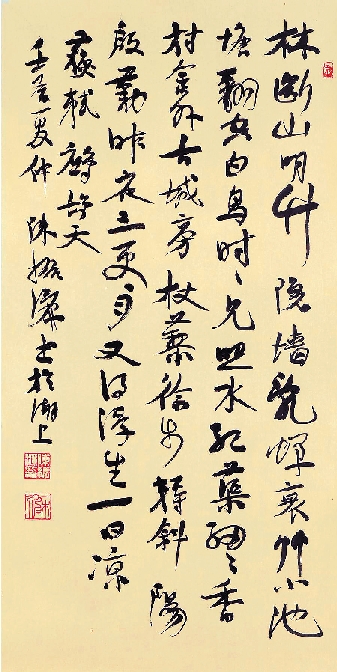 林斷山明竹隱墻亂蟬衰草小池
塘翻空白鳥時々見照水紅蕖細々香
村舍外古城旁杖藜徐步轉斜陽
殷勤昨夜三更雨又得浮生一日涼
蘇軾鷓鴣天
壬辰夏仲陳振濂書於湖上